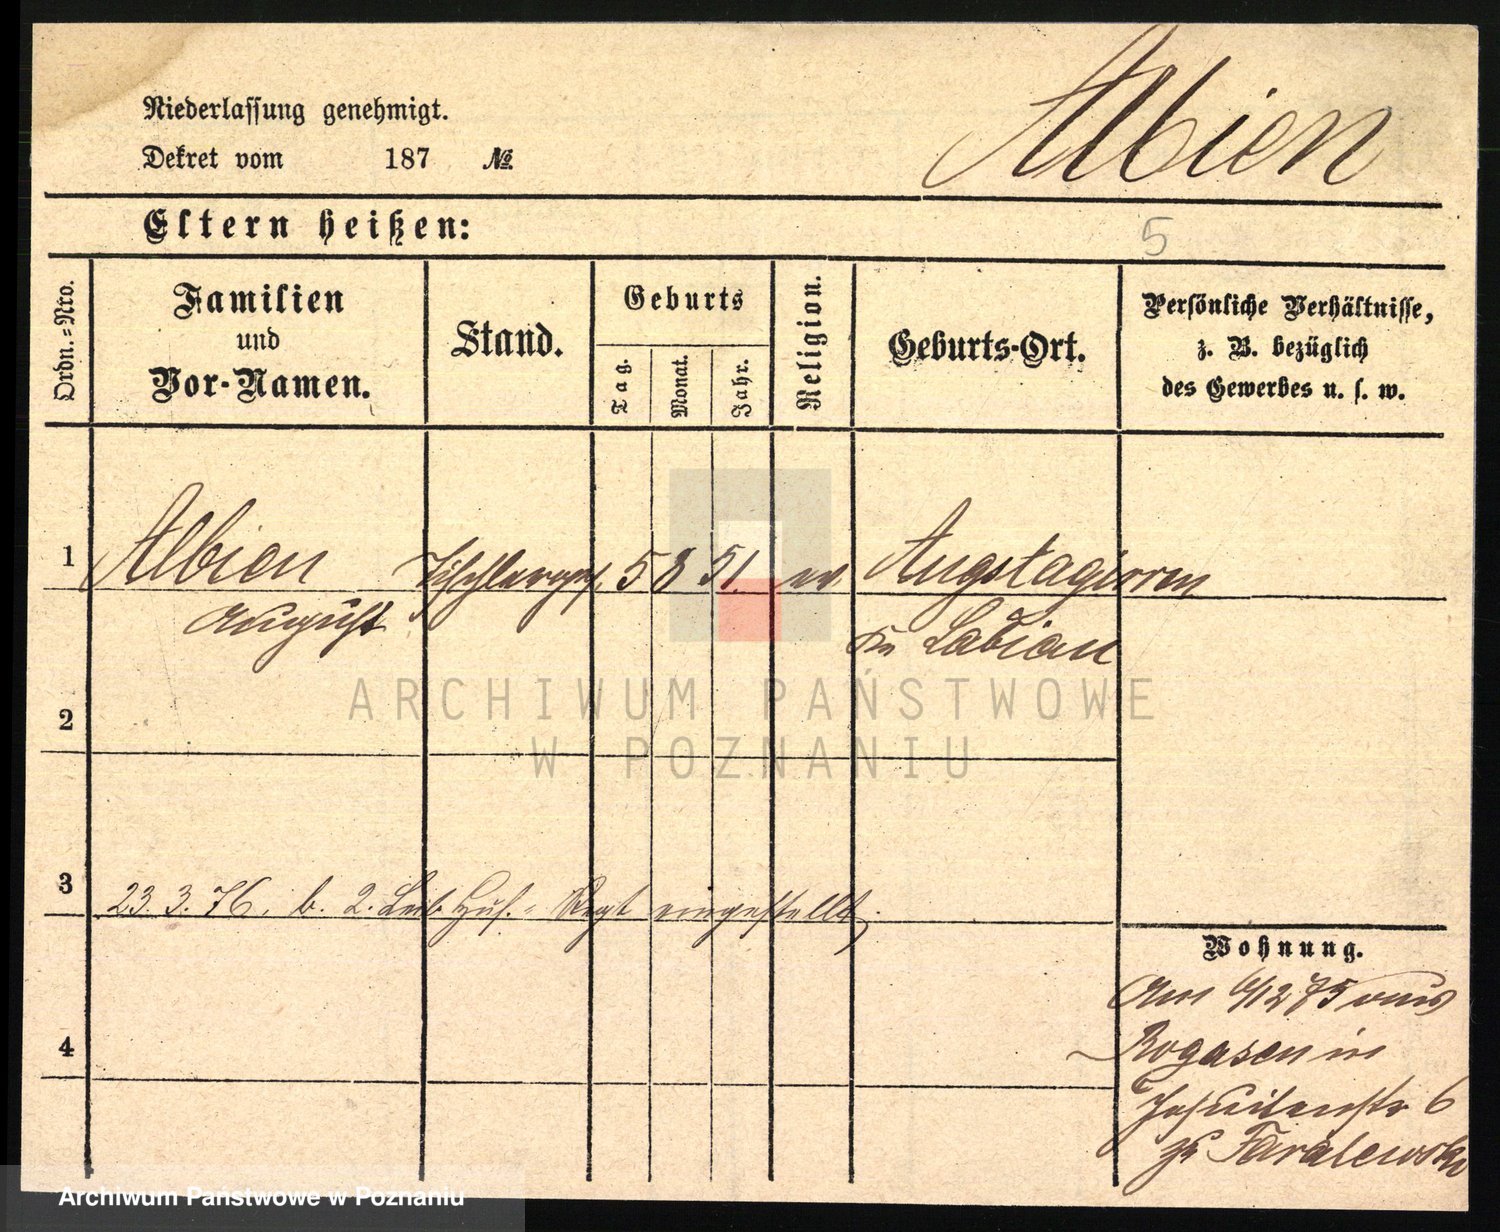 Albien
Niederlassung genehmigt.
Dekret vom 187 №
Eltern heißen:
5
Ordn.-Nro.
Familien
und
Vor-Namen.
Stand.
Geburts
Tag.
Monat.
Jahr.
Religion.
Geburts-Ort.
Persönliche Verhältnisse,
z. B. bezüglich
des Gewerbes u. s. w.
1 Albien Tischlerges. 5 8 51. ev.
August
Labiau
2
ARCHIWUM PAŃSTWOWE
W POZNANIU
3 23. 3. 76. b. 2. Leib Hus.- Regt eingestellt.
Wohnung.
Am 6/12 75 aus
Rogasen in
4
Jesuitenstr 6
zu
Archiwum Państwowe w Poznaniu